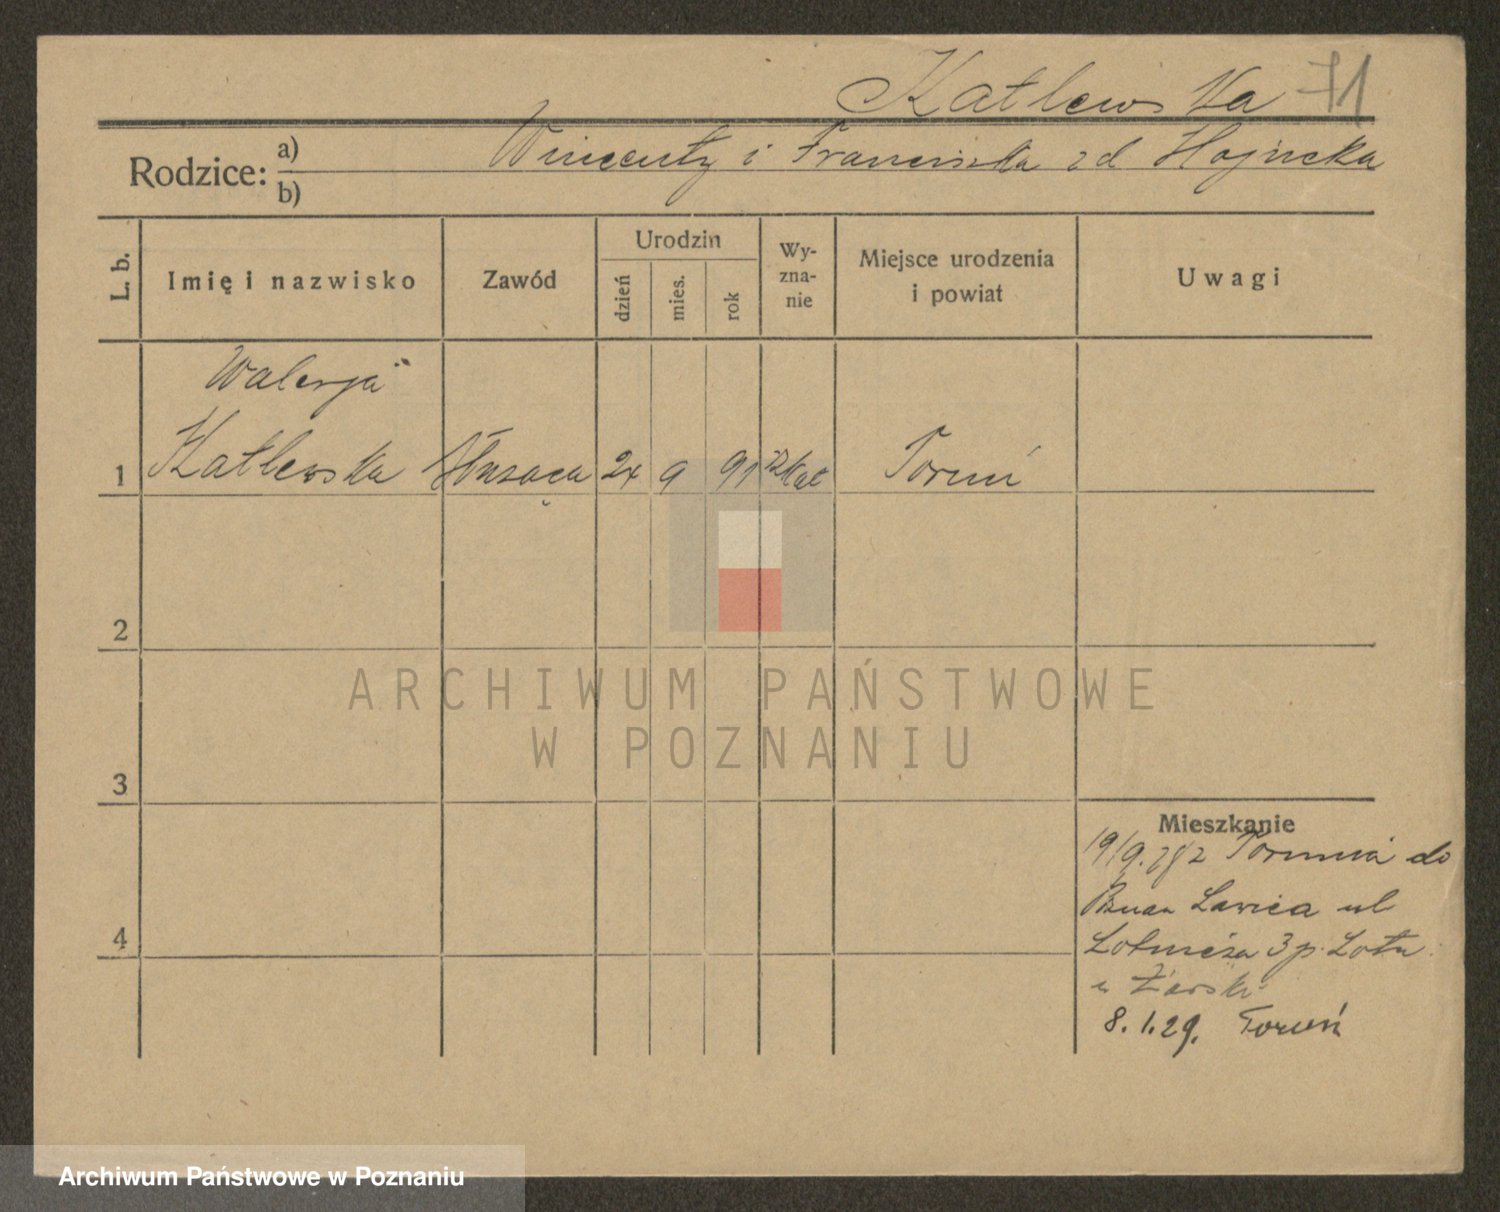 Katlewska 71
Rodzice: a) b)
Wincenty i Franciszka z d Hojncka
L. b.
Imię i nazwisko
Zawód
Urodzin
dzień
mies.
rok
Wy-
zna-
nie
Miejsce urodzenia
i powiat
Uwagi
Walerja
1 Katlewska Służąca 24 9 91 rzkat Toruń
2
3
4
ARCHIWUM PAŃSTWOWE
W POZNANIU
Mieszkanie
19/9.28 z Torunia do
Pznań Ławica ul
Lotnicza 3 p. Lotn
u Żarski
8.1.29. Toruń
Archiwum Państwowe w Poznaniu